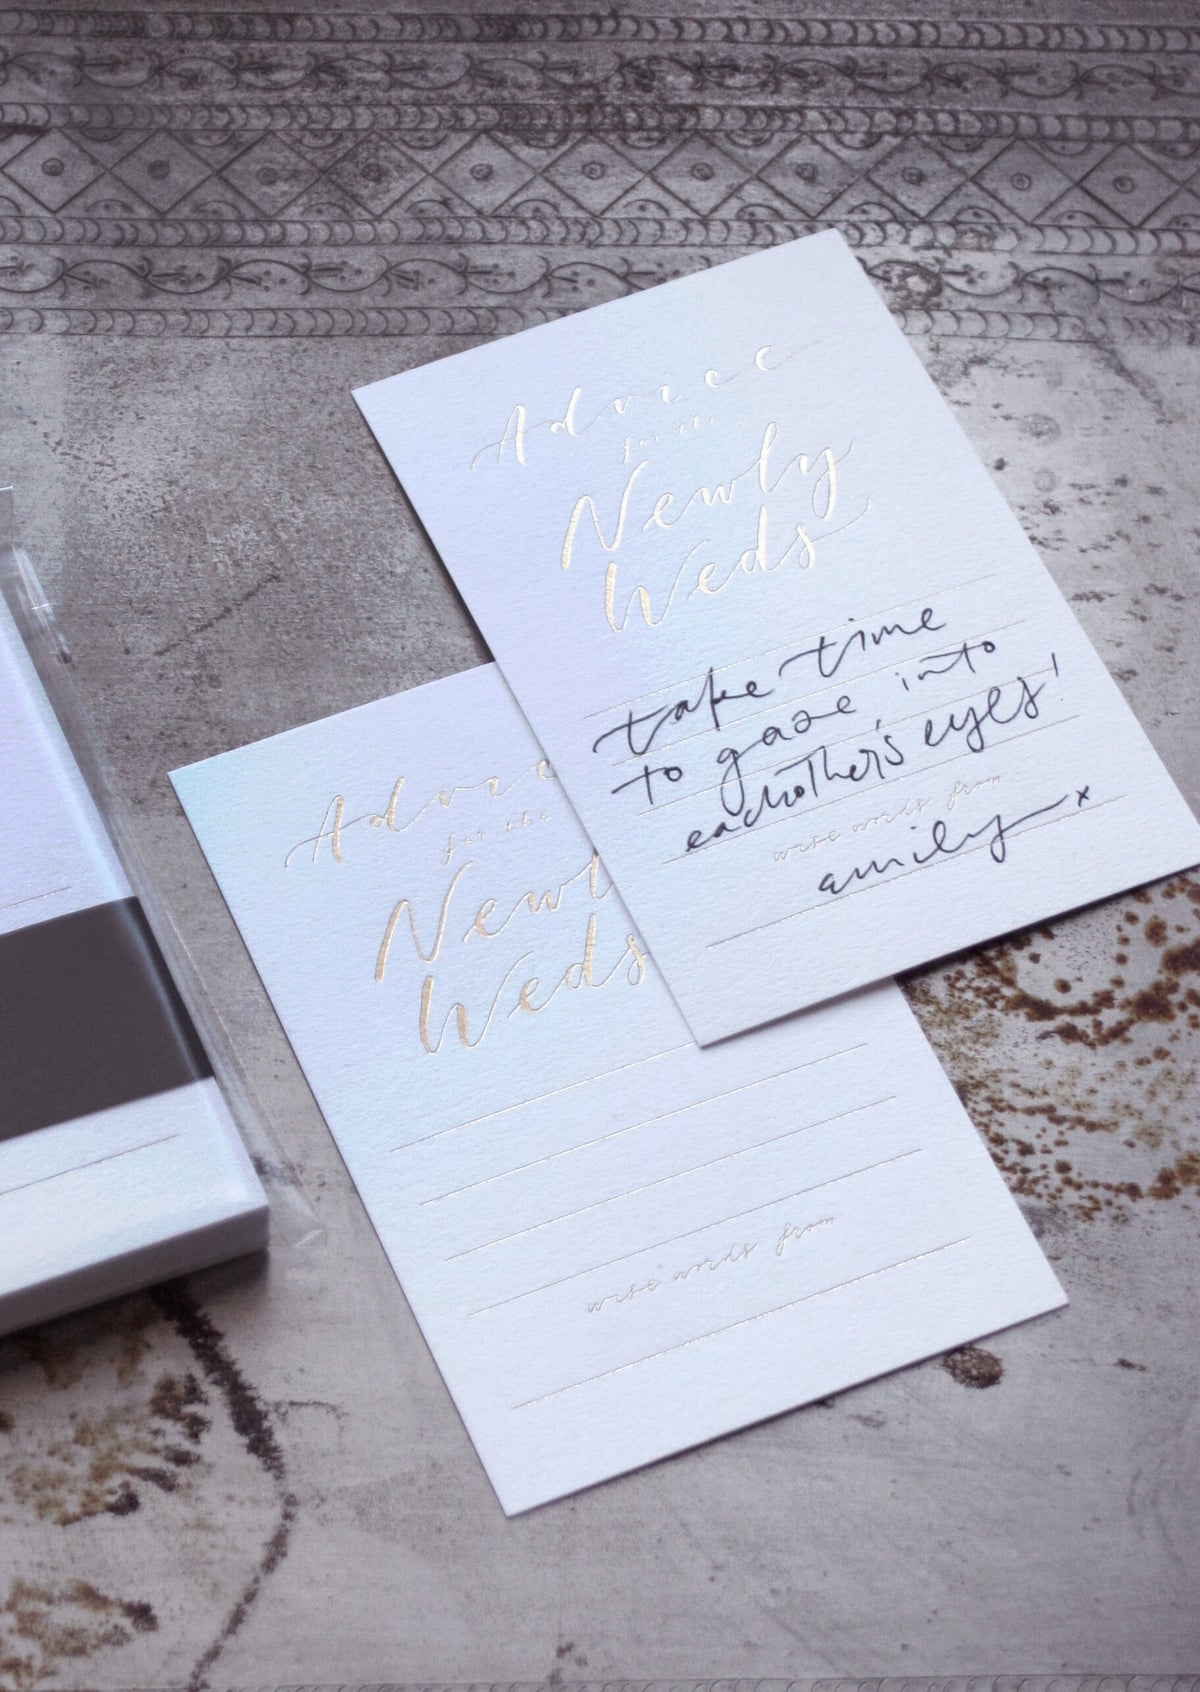 Advice
for the
Newly
Weds
take time
to gaze into
eachother's eyes!
wise words from
emily x
Advice
for the
Newl
Weds
wise words from